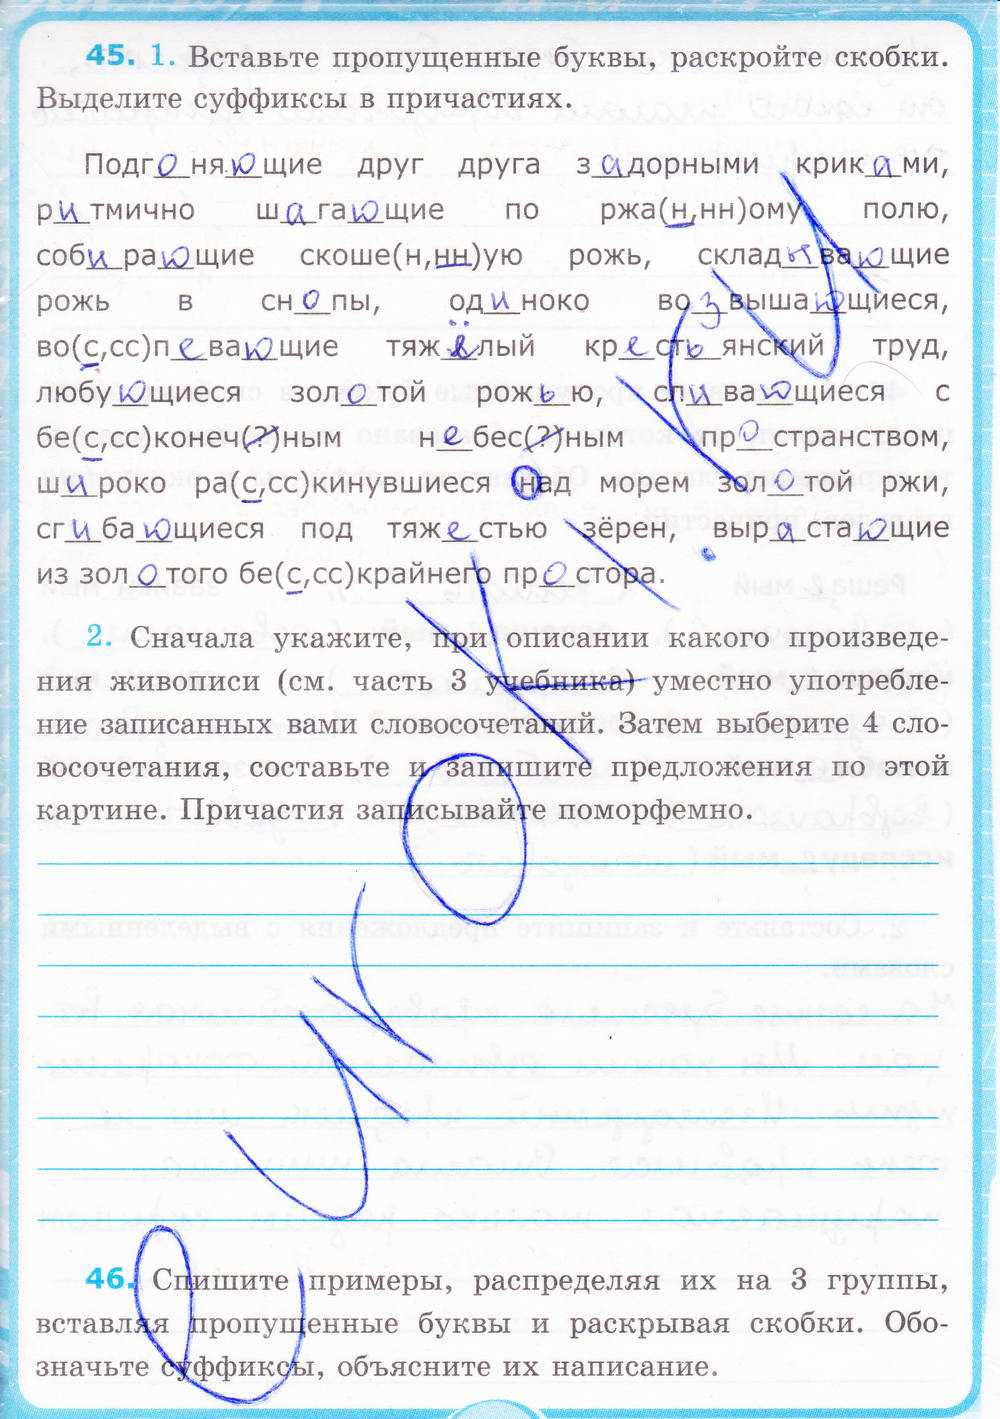 45. 1. Вставьте пропущенные буквы, раскройте скобки.
Выделите суффиксы в причастиях.
Подгоняющие друг друга задорными криками,
ритмично шагающие по ржа(н,нн)ому полю,
собирающие скоше(н,нн)ую рожь, складывающие
рожь в снопы, одиноко возвышающиеся,
во(с,сс)певающие тяжёлый крестьянский труд,
любующиеся золотой рожью, сливающиеся с
бе(с,сс)конеч(?)ным небес(?)ным пространством,
широко ра(с,сс)кинувшиеся над морем золотой ржи,
сгибающиеся под тяжестью зёрен, вырастающие
из золотого бе(с,сс)крайнего простора.
2. Сначала укажите, при описании какого произведе-
ния живописи (см. часть 3 учебника) уместно употребле-
ние записанных вами словосочетаний. Затем выберите 4 сло-
восочетания, составьте и запишите предложения по этой
картине. Причастия записывайте поморфемно.
46. Спишите примеры, распределяя их на 3 группы,
вставляя пропущенные буквы и раскрывая скобки. Обо-
значьте суффиксы, объясните их написание.